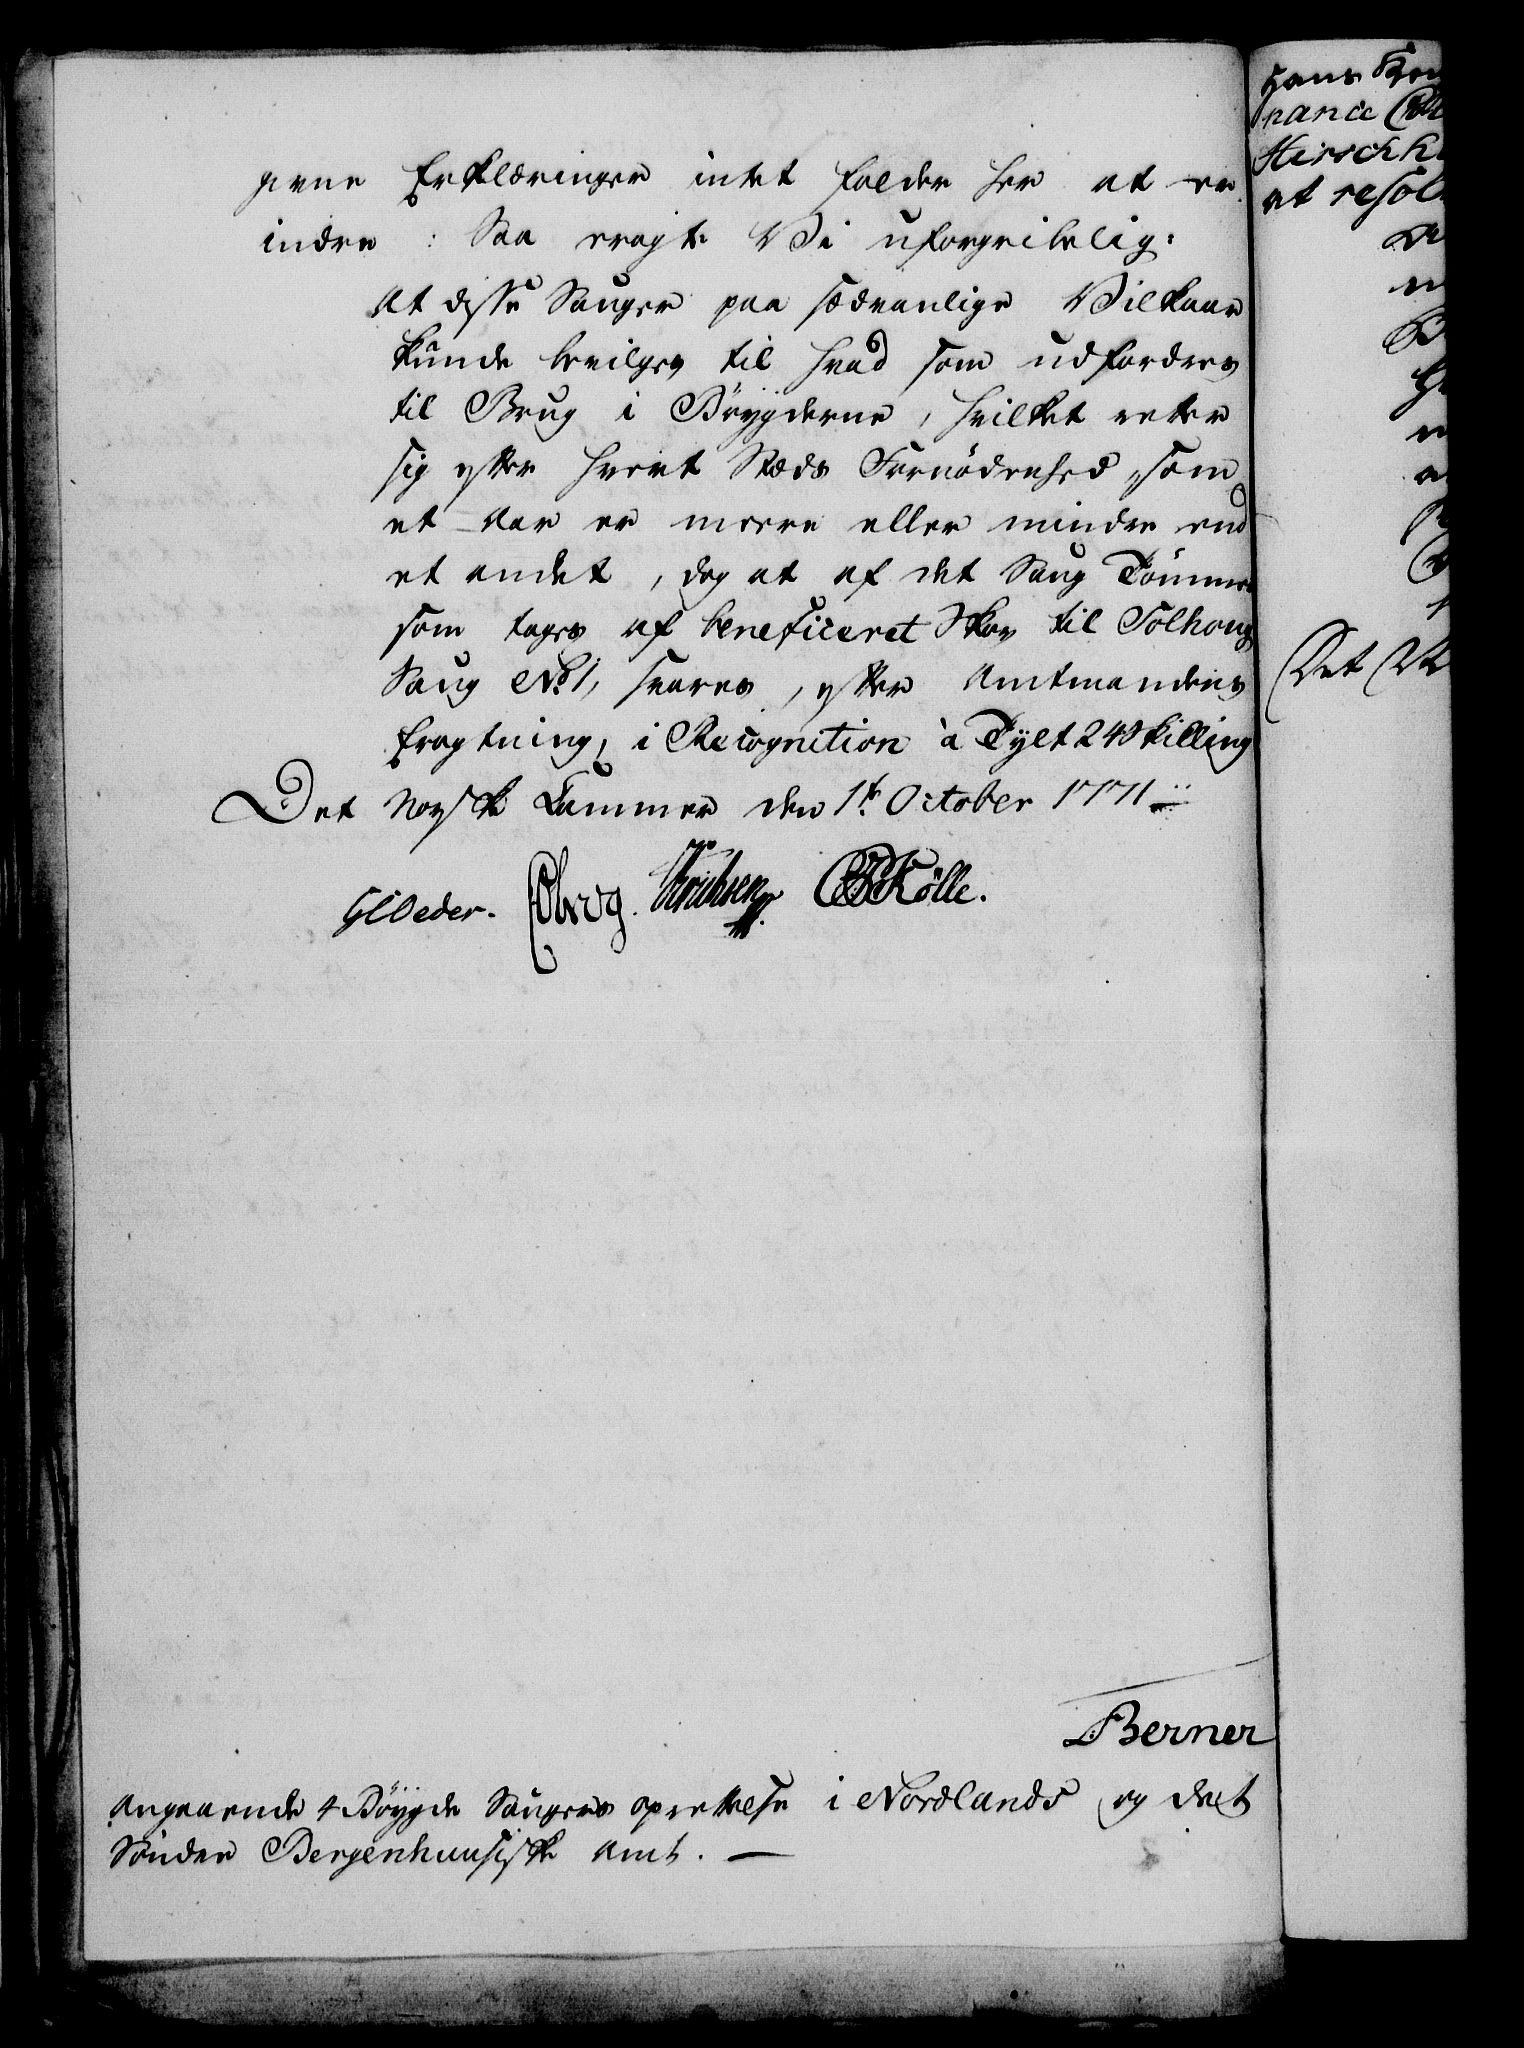 givne Erklæringer intet falder her at er
indre : Saa eragte Vi uforgribelig:
At disse Sauger paa sædvanlige Vilkaar
kunde bevilges til hvad som udfordres
til Brug i Bøygderne, hvilket retter
sig efter hvert Stæds Fornødenhed, som
et Aar er meere eller mindre end
et andet, dog at af det Saug Tømmer
som tages af beneficeret Skov til Solhoug
Saug No 1, svares, efter Amtmandens
Eragtning, i Recognition à Tylt 24 Skilling
Det Norske Kammer den 1te October 1771
GCOeder. Eberg. CBKölle.
Berner
Angaaende 4 Bøygde Saugers oprettelse i Nordlands og det
Sønder Bergenhuusiske Amt. —
Hans
nance
Hirschh
at resol
Det